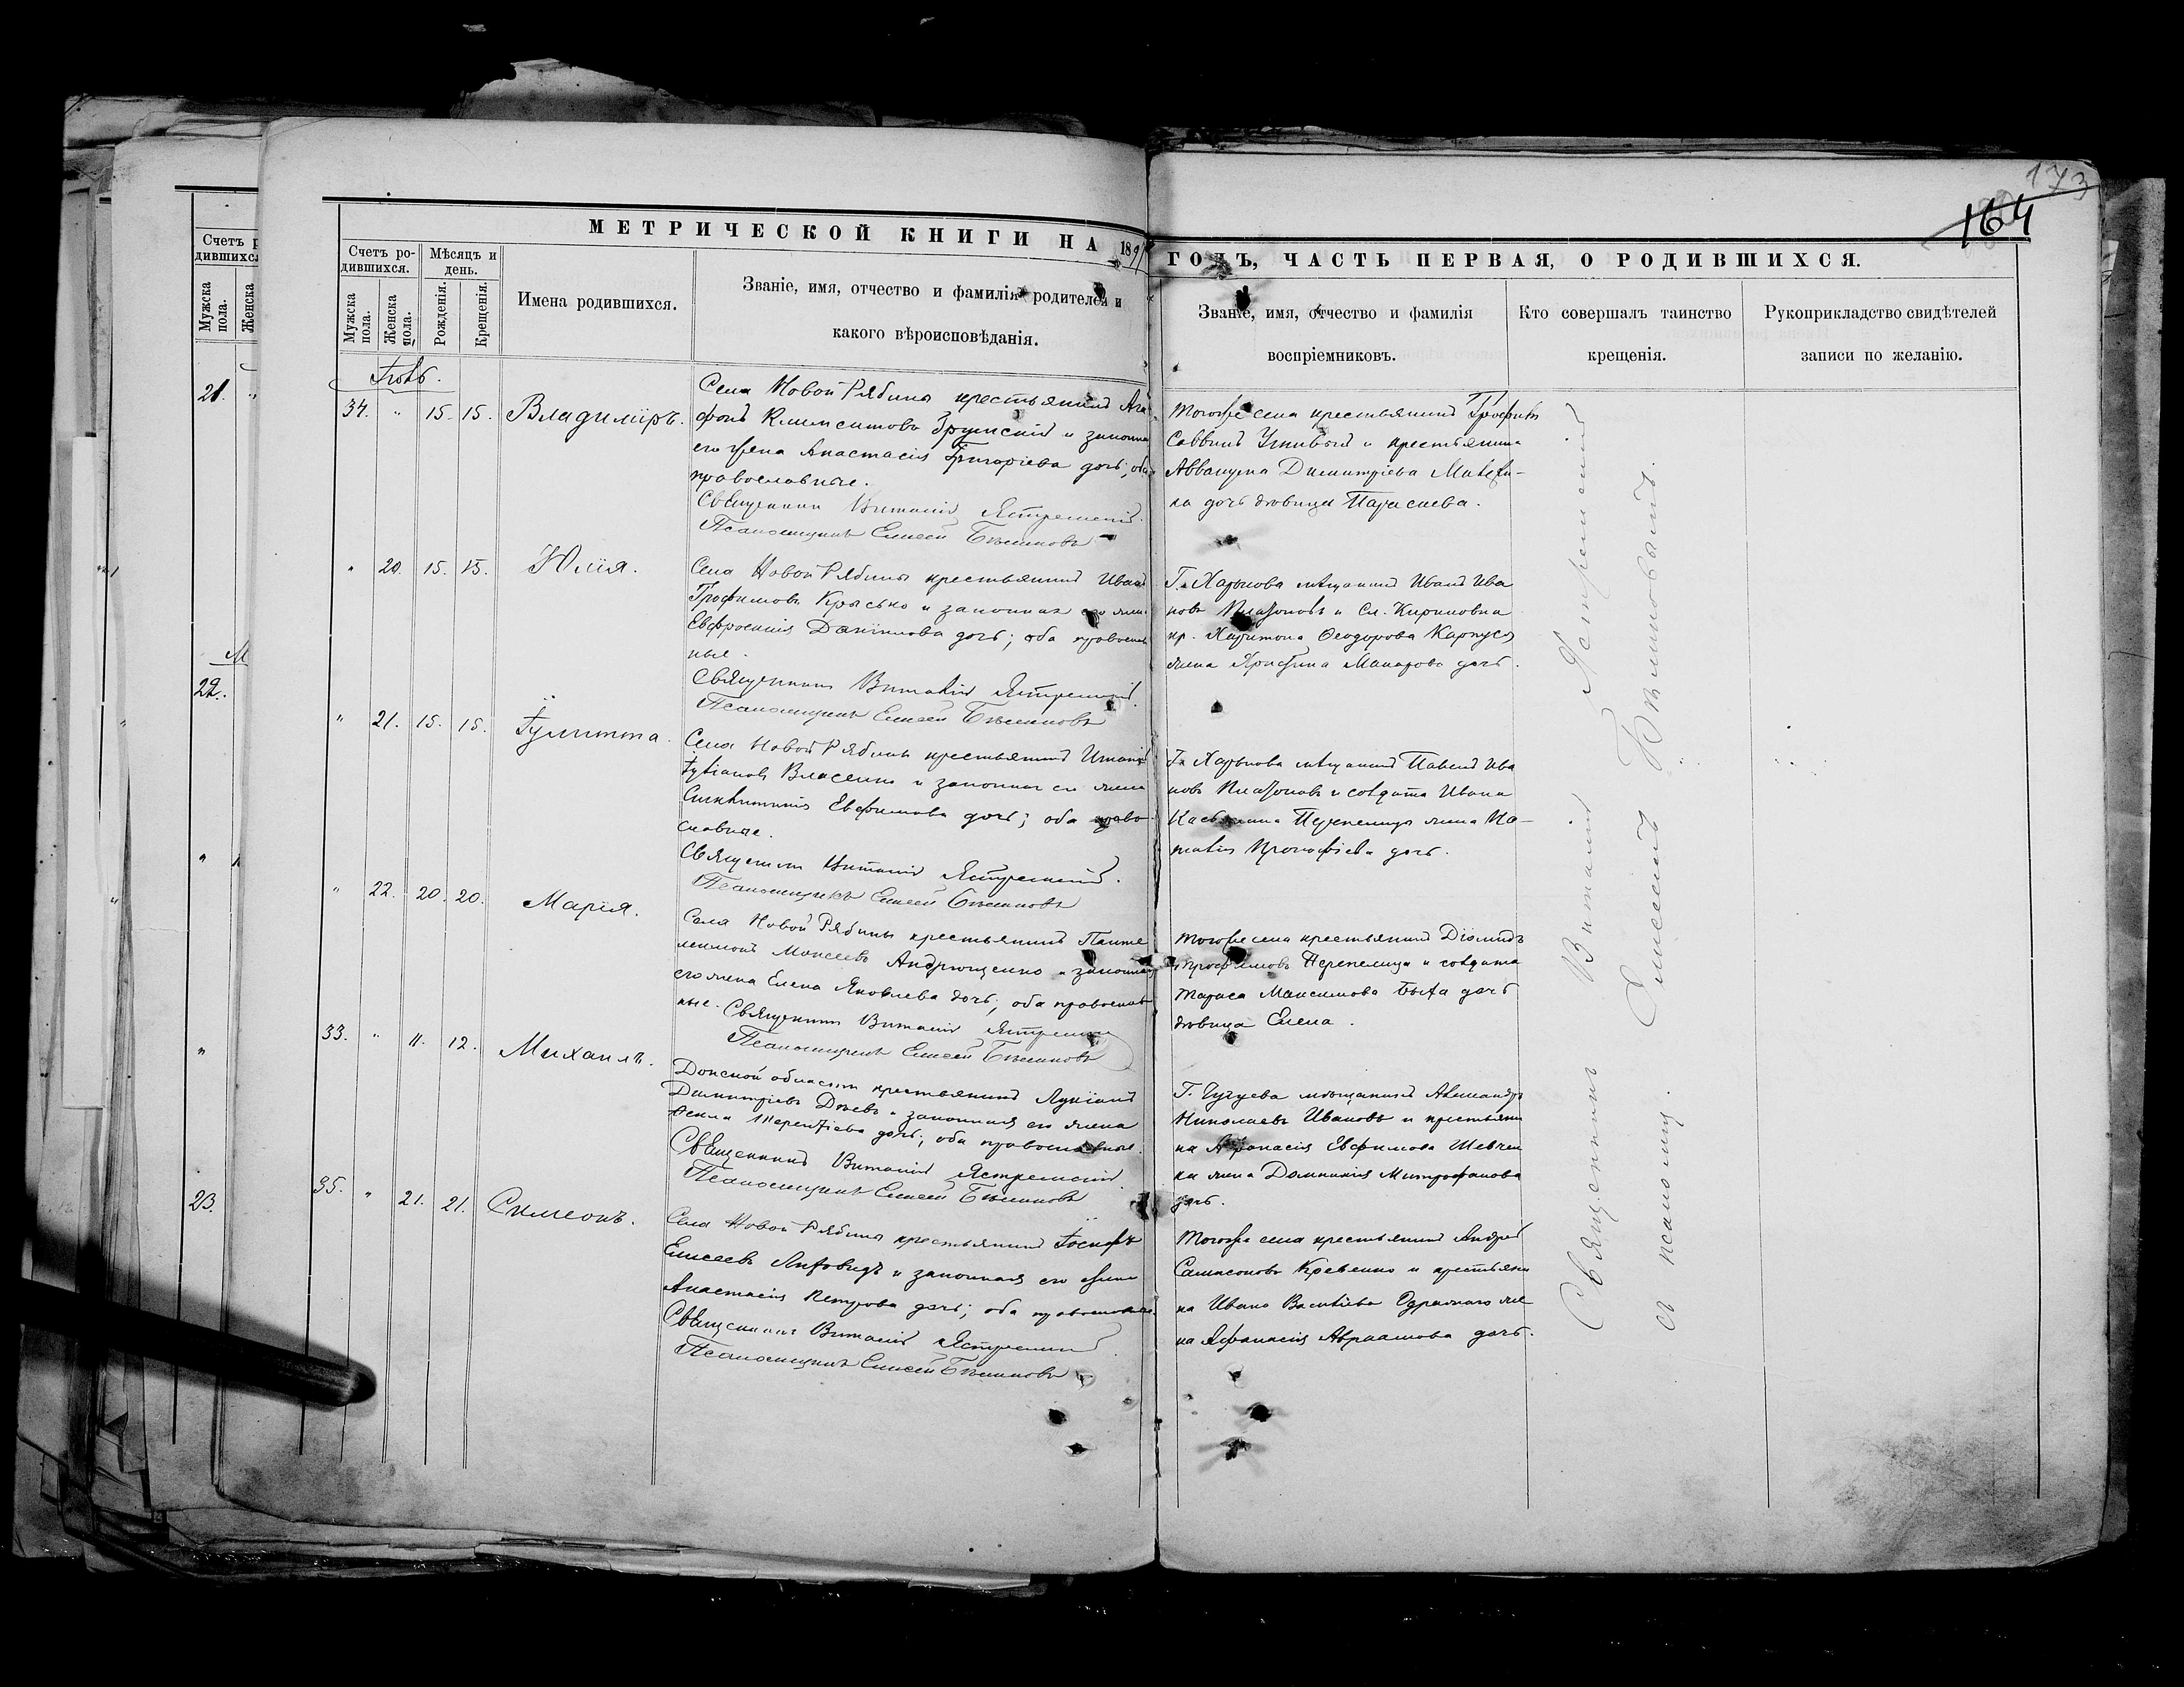 173
164
МЕТРИЧЕСКОЙ КНИГИ НА 189
ГОДЪ, ЧАСТЬ ПЕРВАЯ, О РОДИВШИХСЯ.
Счетъ ро-
дившихся.
Мѣсяцъ и
день.
Мужска
пола.
Женска
пола.
Рожденія.
Крещенія.
Имена родившихся.
Званіе, имя, отчество и фамилія родителей и
какого вѣроисповѣданія.
Званіе, имя, отчество и фамилія
воспріемниковъ.
Кто совершалъ таинство
крещенія.
Рукоприкладство свидѣтелей
записи по желанію.
Счетъ р
дившихся
Мужска
пола.
Женска
21. "
22.
23.
34. " 15. 15. Владиміръ.
Села Новой Рябины крестьянинъ Ага
фонъ и законная
его жена Анастасія Григоріева дочь, оба
православные.
Священникъ Виталій Ястремскій.
Псаломщикъ Елисей Бѣлиновъ
Тогоже села крестьянинъ Трофимъ
Саввинъ и крестьянина
Аввакума Димитріева
ла дочь дѣвица Параскева.
" 20. 15. 15. Юлія.
Села Новой Рябины крестьянинъ Иванъ
Трофимовъ Крысько и законная его жена
Евфросинія Даніилова дочь; оба православ
ные.
Священникъ Виталій Ястремскій.
Псаломщикъ Елисей Бѣлиновъ
Г. Харькова мѣщанинъ Иванъ Ива
новъ Платоновъ и Сл. Кириковка
кр. Харитона Ѳеодорова Карпуся
жена Христина Макарова дочь.
" 21. 15. 15. Іулитта.
Села Новой Рябины крестьянинъ
Власенко и законная его жена
Синклитикія Евфимова дочь; оба право-
славные.
Священникъ Виталій Ястремскій.
Псаломщикъ Елисей Бѣлиновъ
Г. Харькова мѣщанинъ Павелъ Ива
новъ Платоновъ и солдата Ивана
Касьянина Перепелицы жена На-
талія Прокофіева дочь.
" 22. 20. 20. Марія.
Села Новой Рябины крестьянинъ Панте
леимонъ Моисеевъ Андрющенко и законная
его жена Елена Яковлева дочь; оба православ
ные. Священникъ Виталій Ястремскій
Псаломщикъ Елисей Бѣлиновъ
Тогоже села крестьянинъ Діомидъ
Трофимовъ Перепелица и солдата
Тараса Максимова дочь
дѣвица Елена.
33. " 11. 12. Михаилъ.
Донской области крестьянинъ Лукіанъ
Димитріевъ и законная его жена
Ѳекла Терентіева дочь; оба православные.
Священникъ Виталій Ястремскій.
Псаломщикъ Елисей Бѣлиновъ
Г. Чугуева мѣщанинъ Александръ
Николаевъ Ивановъ и крестьяни
на Аѳанасія Евфимова Шевчен
ка жена Домникія Митрофанова
дочь.
35. " 21. 21. Симеонъ.
Села Новой Рябины крестьянинъ Іосифъ
Елисеевъ и законная его жена
Анастасія Петрова дочь; оба православные.
Священникъ Виталій Ястремскій
Псаломщикъ Елисей Бѣлиновъ
Тогоже села крестьянинъ Андрей
Сампсоновъ и крестьяни
на Ивана Василіева же
на Аѳанасія Авраамова дочь.
Священникъ Виталій Ястремскій
съ псаломщ. Елисеемъ